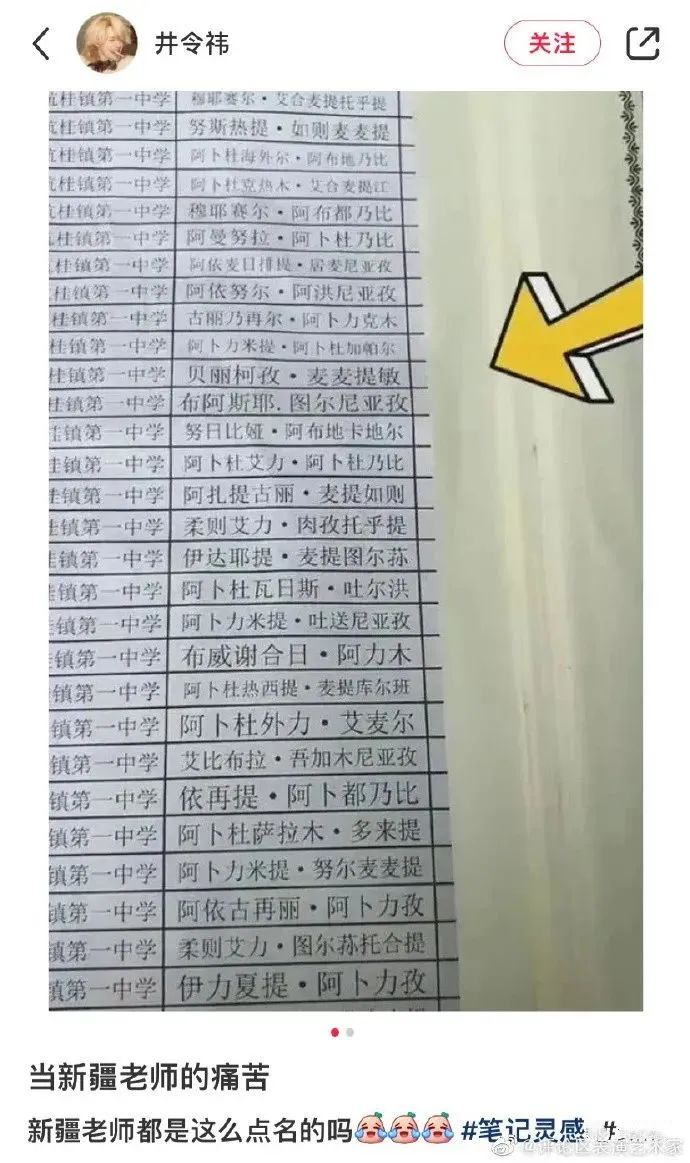 井令祎
关注
桂镇第一中学 穆耶赛尔·艾合麦提托乎提
桂镇第一中学 努斯热提·如则麦麦提
桂镇第一中学 阿卜杜海外尔·阿布地乃比
桂镇第一中学 阿卜杜克热木·艾合麦提江
桂镇第一中学 穆耶赛尔·阿布都乃比
桂镇第一中学 阿曼努拉·阿卜杜乃比
桂镇第一中学 阿依麦日排提·居麦尼亚孜
桂镇第一中学 阿依努尔·阿洪尼亚孜
桂镇第一中学 古丽乃再尔·阿卜力克木
桂镇第一中学 阿卜力米提·阿卜杜加帕尔
桂镇第一中学 贝丽柯孜·麦麦提敏
桂镇第一中学 布阿斯耶.图尔尼亚孜
桂镇第一中学 努日比娅·阿布地卡地尔
桂镇第一中学 阿卜杜艾力·阿卜杜乃比
桂镇第一中学 阿扎提古丽·麦提如则
桂镇第一中学 柔则艾力·肉孜托乎提
桂镇第一中学 伊达耶提·麦提图尔荪
桂镇第一中学 阿卜杜瓦日斯·吐尔洪
桂镇第一中学 阿卜力米提·吐送尼亚孜
桂镇第一中学 布威谢合日·阿力木
镇第一中学 阿卜杜热西提·麦提库尔班
镇第一中学 阿卜杜外力·艾麦尔
镇第一中学 艾比布拉·吾加木尼亚孜
镇第一中学 依再提·阿卜都乃比
镇第一中学 阿卜杜萨拉木·多来提
镇第一中学 阿卜力米提·努尔麦麦提
镇第一中学 阿依古再丽·阿卜力孜
镇第一中学 柔则艾力·图尔荪托合提
镇第一中学 伊力夏提·阿卜力孜
当新疆老师的痛苦
新疆老师都是这么点名的吗😂😂😂 #笔记灵感 #
@评论区表演艺术家